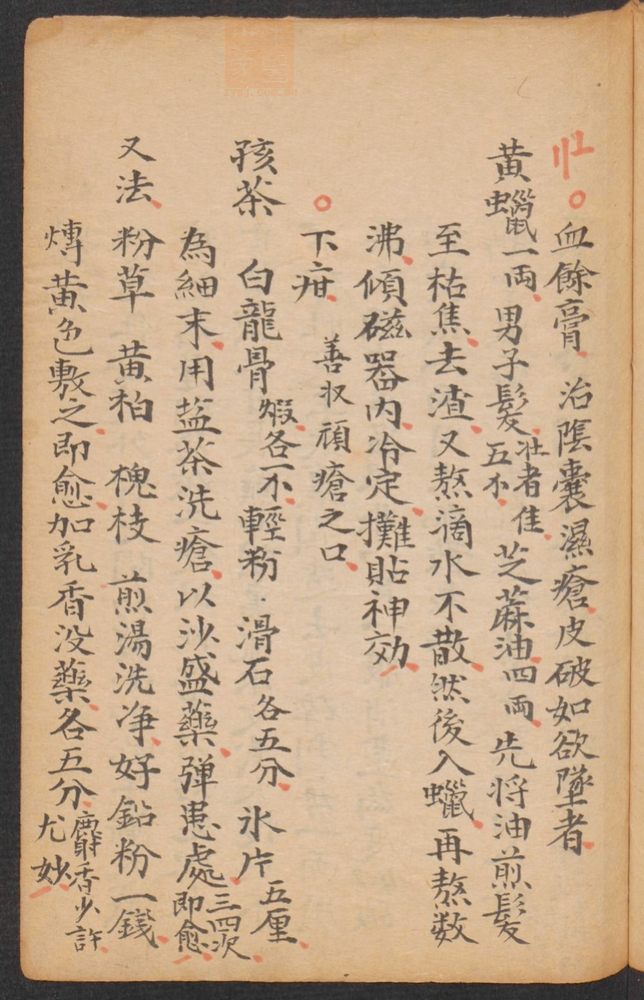 血餘膏 治陰囊濕瘡皮破如欲墜者
黄蠟一両 男子髮壮者佳五 芝蔴油四両 先将油煎髮
至枯焦去渣又熬滴水不散然後入蠟再熬数
沸傾磁器内冷定攤貼神効
下疳 善收頑瘡之口
孩茶 白龍骨煆各一 輕粉 滑石各五分 氷片五厘
為細末用盐茶洗瘡以沙盛藥弹患處三四次即愈
又法 粉草 黄柏 槐枝 煎湯洗净好鉛粉一錢
煿黄色敷之即愈加乳香没藥各五分麝香少許尤妙